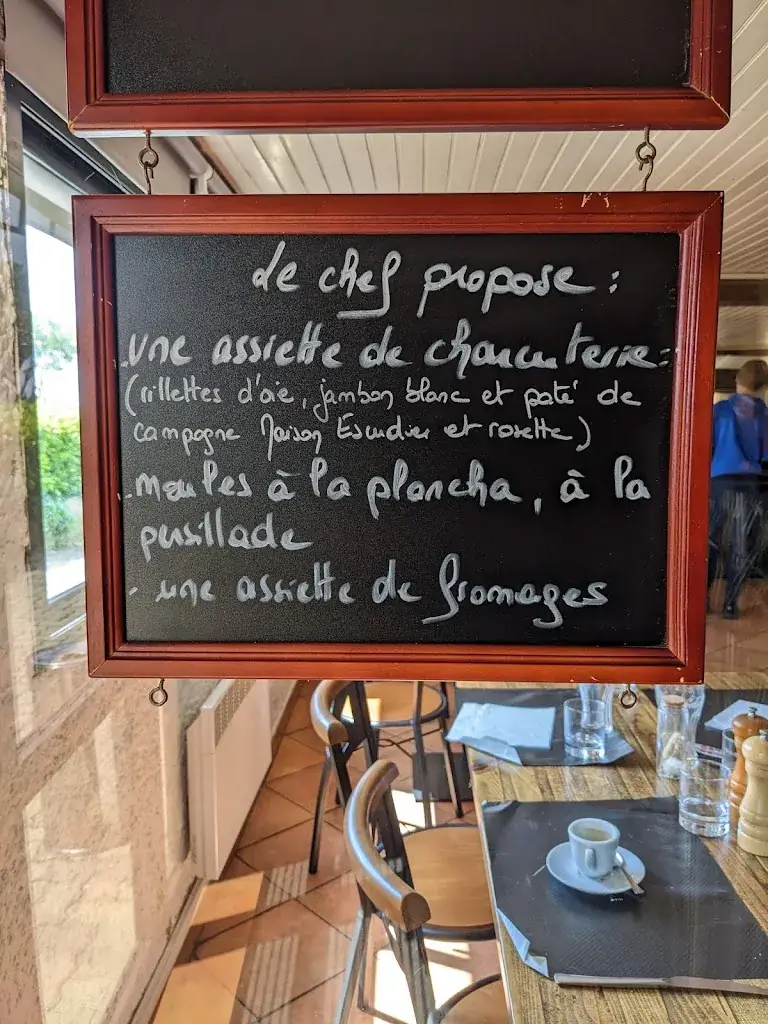 Le chef propose :
. une assiette de charcuterie :
(rillettes d'oie, jambon blanc et paté de
campagne Maison Escudier et rosette)
. moules à la plancha, à la
persillade
. une assiette de fromages